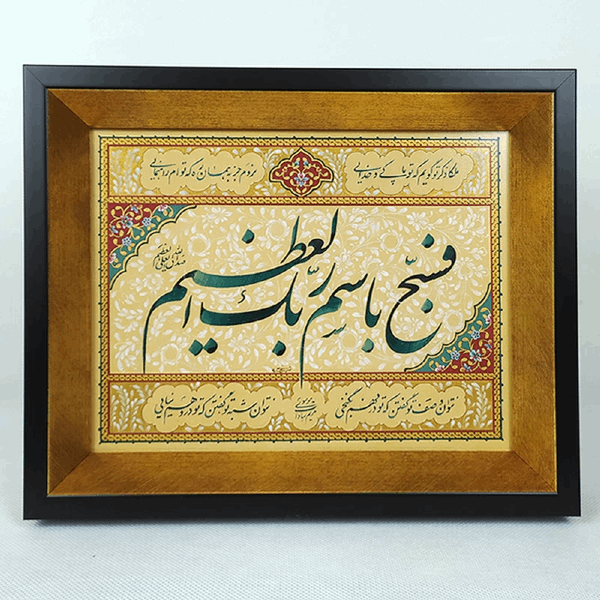 ملکا ذکر تو گویم که تو پاکی و خدایی
نروم جز به همان ره که توام راهنمایی
فسبّح باسم ربّک العظیم
صدق الله العلی العظیم
نتوان وصف تو گفتن که تو در فهم نگنجی
نتوان شبه تو گفتن که تو در وهم نیایی